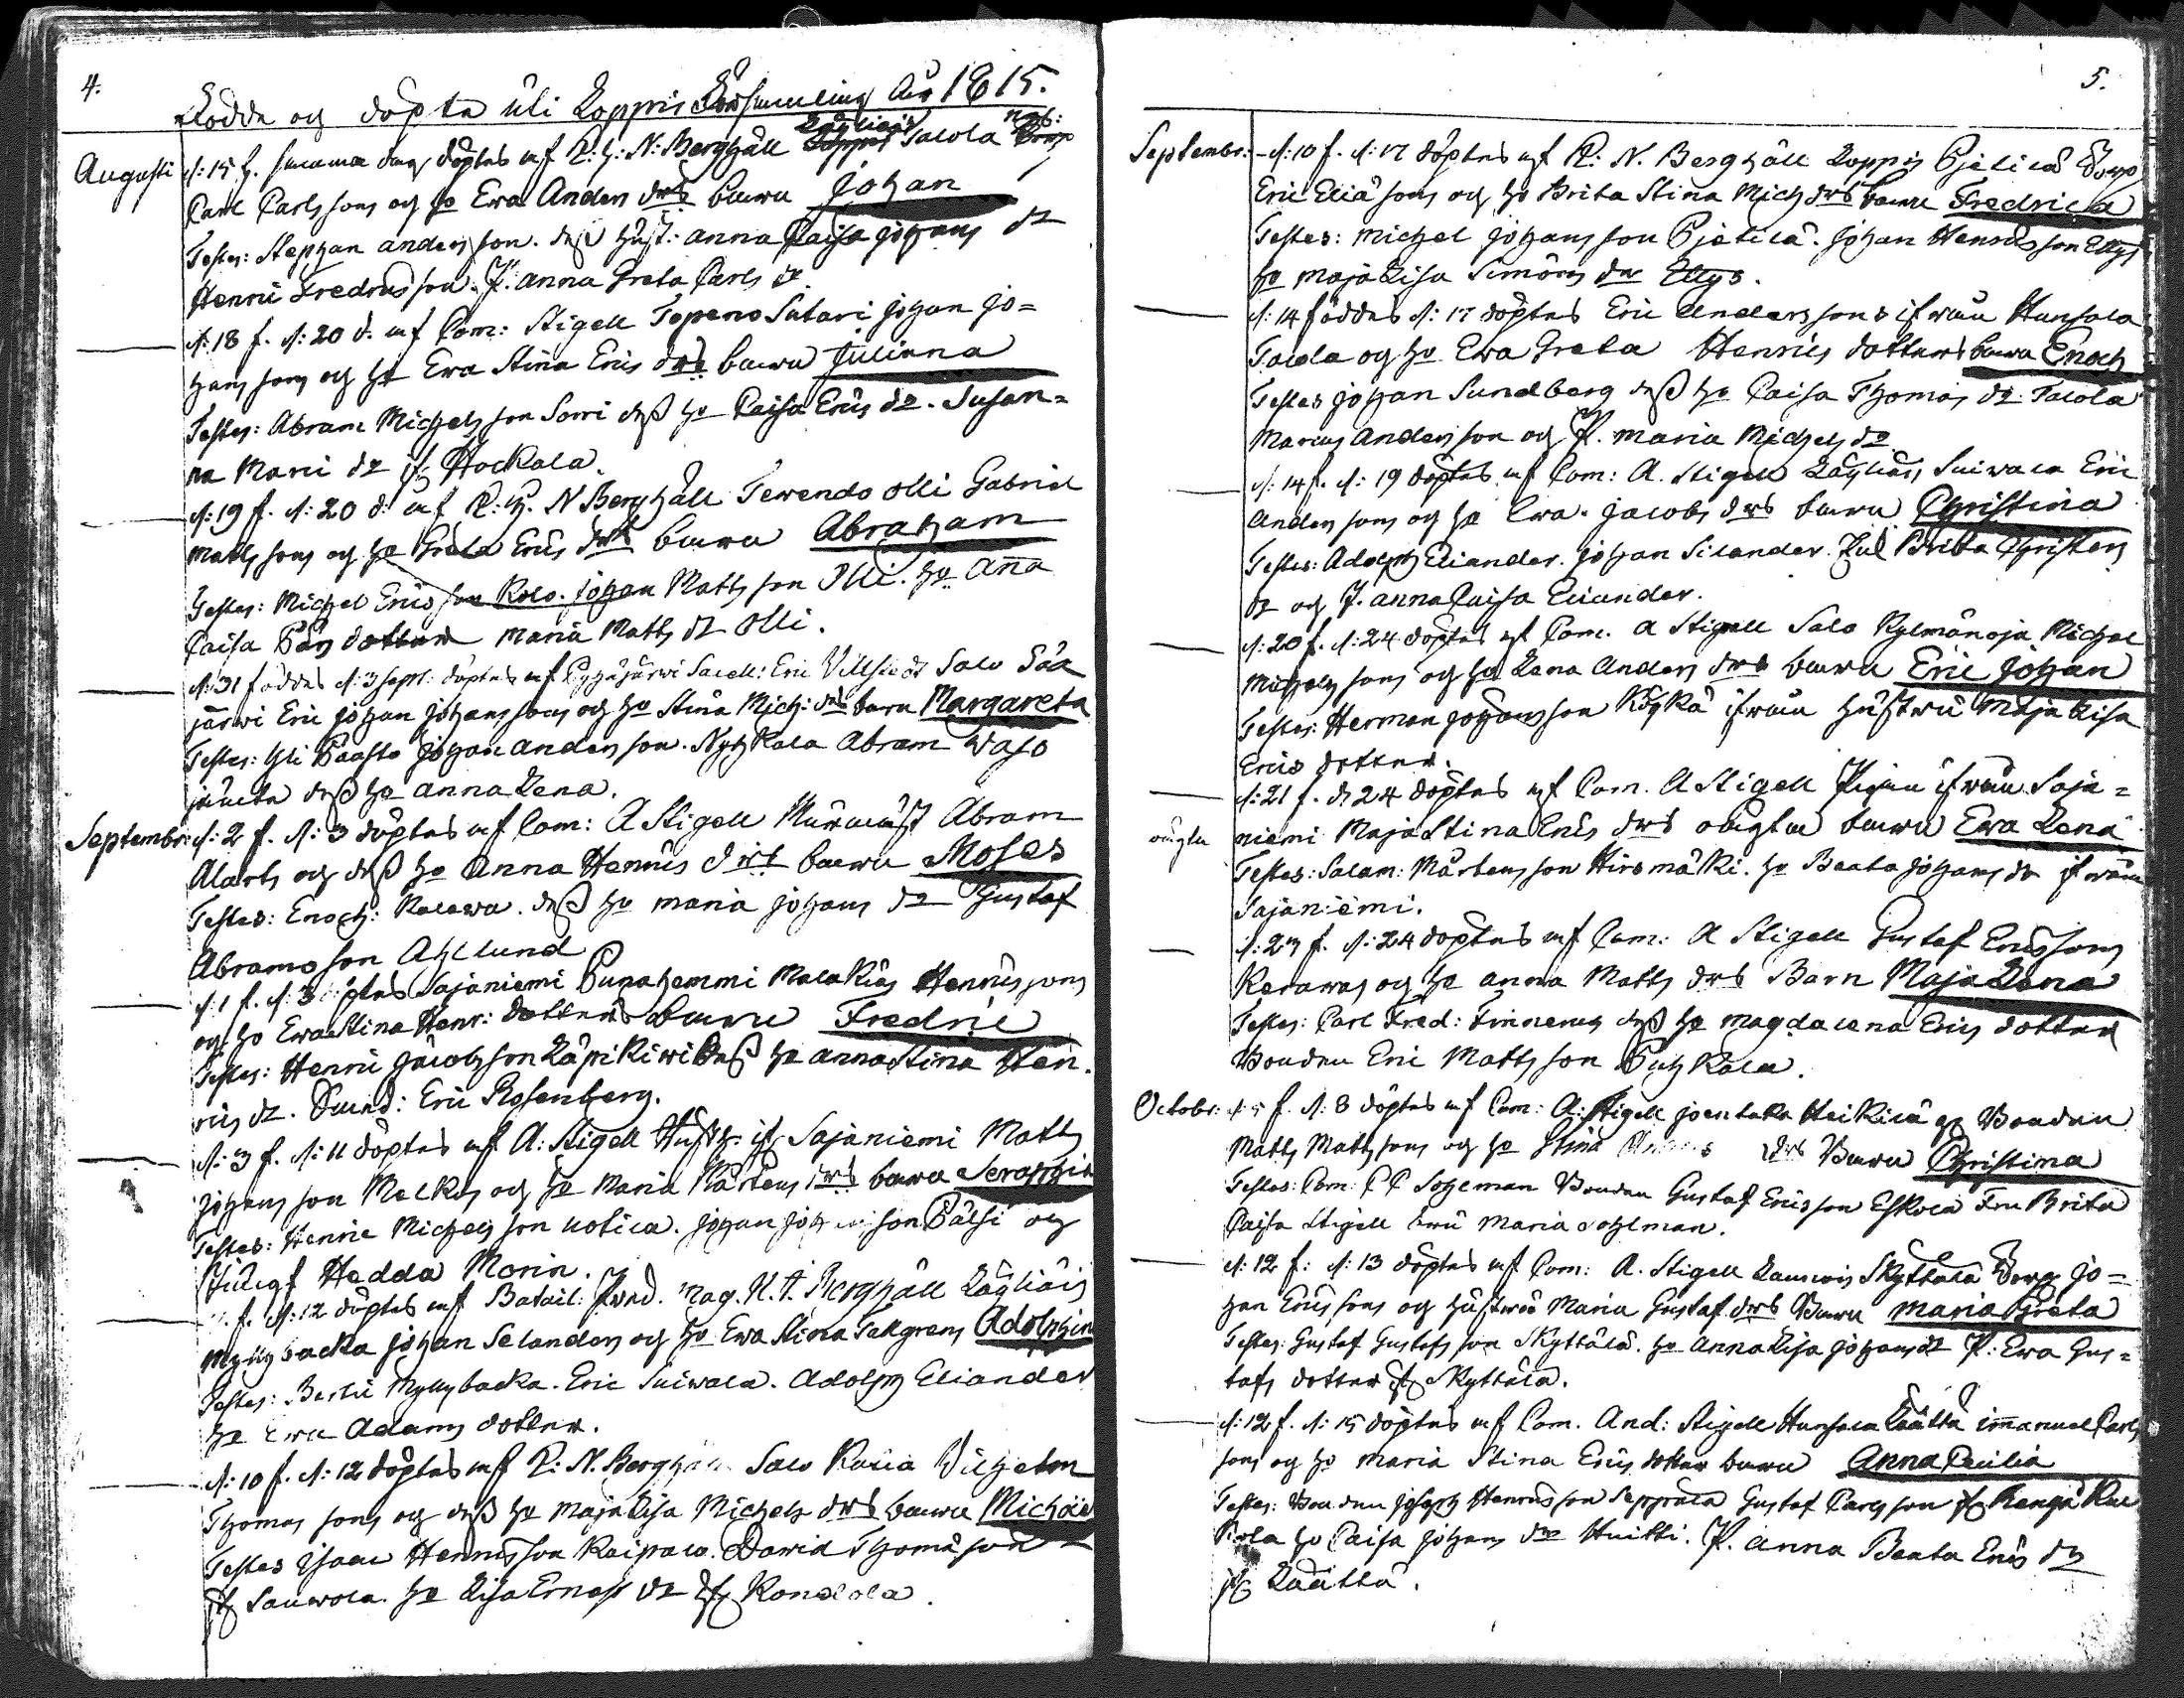 4.
Födde og döpte uti Loppis Församling År 1815.
Augusti d: 15 f. samma dag döptes af P: H: N: Berghäll Läyliäis Salola
Carl Carlssons og ho Eva Anders drs barn Johan
Testes: Stephan andersson. dess hust: anna Caisa Johans dr
Henric Fredricsson. P. anna Greta Carls dr.
d: 18 f. d: 20 d. af Com: Stigell Topeno Sutari Johan Jo=
hans sons og ho Eva Stina Erics drs barn Juliana
Testes: Abram Michelsson Sorri dess ho Caisa Erics dr. Susan=
na Marci dr fr. Hockala.
d: 19 f. d: 20 d: af P: H. N Berghäll Tevendo Olli Gabriel
Matts sons og ho Greta Erics drs barn Abraham
Testes: Michel Ericsson Kolo. Johan Matts son Olli. ho Anna
Caisa Pärs dotter Maria Matts dr Olli.
d: 31 föddes d: 3 sept: döptes af Pyhäjärvi Sacell: Eric Salo Sää
järvi Eric Johan Johanssons og ho Stina Mich: drs barn Margareta
Testes: Yli Paasto Johan andersson. Abram
dess ho anna Lena.
Septembr: d: 2 f. d: 3 döptes af Com: A Stigell Abram
Alarts og dess ho Anna Henrics drs barn Moses
Testes: Enoch: dess ho maria Johans dr Gustaf
Abramsson Ahllund
d: 1 f. d: 3 döptes Sajaniemi Punahemmi Malakias Henrics sons
og ho Eva Stina Henr: dotters barn Fredric
Testes: Henric Jacobsson Läpikivi dess ho anna Stina Hen.
rics dr. Eric Rosenberg.
d: 3 f. d: 11 döptes af A: Stigell fr. Sajaniemi Matts
Johans son og ho Maria Mårtens drs barn Seraphin
Testes: Henric Michels son Uotila. Johan Johansson Pälsi og
Hedda Morin.
f. d: 12 döptes af Batail: Pred. Mag. N. J. Berghäll Läyliäis
Myllybacka Johan Selanders og ho Eva Stina Tallgrens Adolphin
Testes: Bertil Myllybacka. Eric Suivala. Adolph Eliander
ho Eva Adams dotter.
d: 10 f. d: 12 döptes af P: N. Berghäll Salo Vilhelm
Thomas sons og dess ho Maja Lisa Michels drs barn Michäel
Testes Isaac Henricsson Kaipala. David Thomasson
fr Sauvola. ho Lisa Ernest dr fr Kondola.
5.
Septembr: d: 10 f. d: 17 döptes af P: N. Berghäll Loppis Pjetilä Torp
Eric Elia sons og ho Brita Stina Mich drs barn Fredrica
Testes: Michel Johans son Pjetilä. Johan Henricsson Ellys
ho Maja Lisa Simons dr Ellys.
d: 14 föddes d: 17 döptes Eric Anderssons ifrån Hunsala
Talola og ho Eva Greta Henrics dotters barn Enoch
Testes Johan Sundberg dess ho Caisa Thomas dr: Talola
Marcus Andersson og P. Maria Michels dr
d: 14 f. d: 19 döptes af Com: A. Stigell Läyliäis Suivala Eric
Anders sons og ho Eva. Jacobs drs barn Christina
Testes: Adolph Eliander. Johan Silander. Brita Christers
dr og J. anna Caisa Eliander.
d: 20 f. d: 24 döptes af Com. A Stigell Salo Kylmänoja Michel
Michels sons og ho Lena Anders drs barn Eric Johan
Testes: Herman Johansson ifrån hustru Maja Lisa
Erics dotter.
d: 21 f. d 24 döptes af Com. A Stigell Pigan ifrån Saja=
oägta niemi Maja Stina Erics drs oägta barn Eva Lena
Testes: Salam: Mårtensson Hirsmäki. ho Beata Johans dr ifrån
Sajaniemi.
d: 23 f. d: 24 döptes af Com: A Stigell Gustaf Ericssons
Keravas og ho anna Matts drs Barn Maja Lena
Testes: Carl Fred: Finnerus dess ho Magdalena Erics dotter
Bonden Eric Matts son Puhkala.
Octobr: d: 5 f. d: 8 döptes af Com: A: Stigell Joentaka Heikilä Bonden
Matts Matts sons og ho Stina drs Barn Christina
Testes: Com: Sohlman Bonden Gustaf Ericsson Eskola Fru Brita
Caisa Stigell Maria Sohlman.
d: 12 f: d: 13 döptes af Com: A. Stigell Launois Skyttälä Torp Jo=
han Erics sons og hustrus Maria Gustaf drs Barn Maria Greta
Testes: Gustaf Gustafs son Skyttälä. ho Anna Lisa Johans dr P: Eva Gus=
tafs dotter fr Skyttälä.
d: 12 f. d: 15 döptes af Com. And: Stigell Hunsala Läättä Immanuel Carls
sons og ho Maria Stina Erics dotters barn Anna Cecilia
Testes: Bonden Joseph Henricsson Seppälä Gustaf Carlsson
ho Caisa Johans dr Huitti. P. Anna Beata Erics dr
fr Läättä.